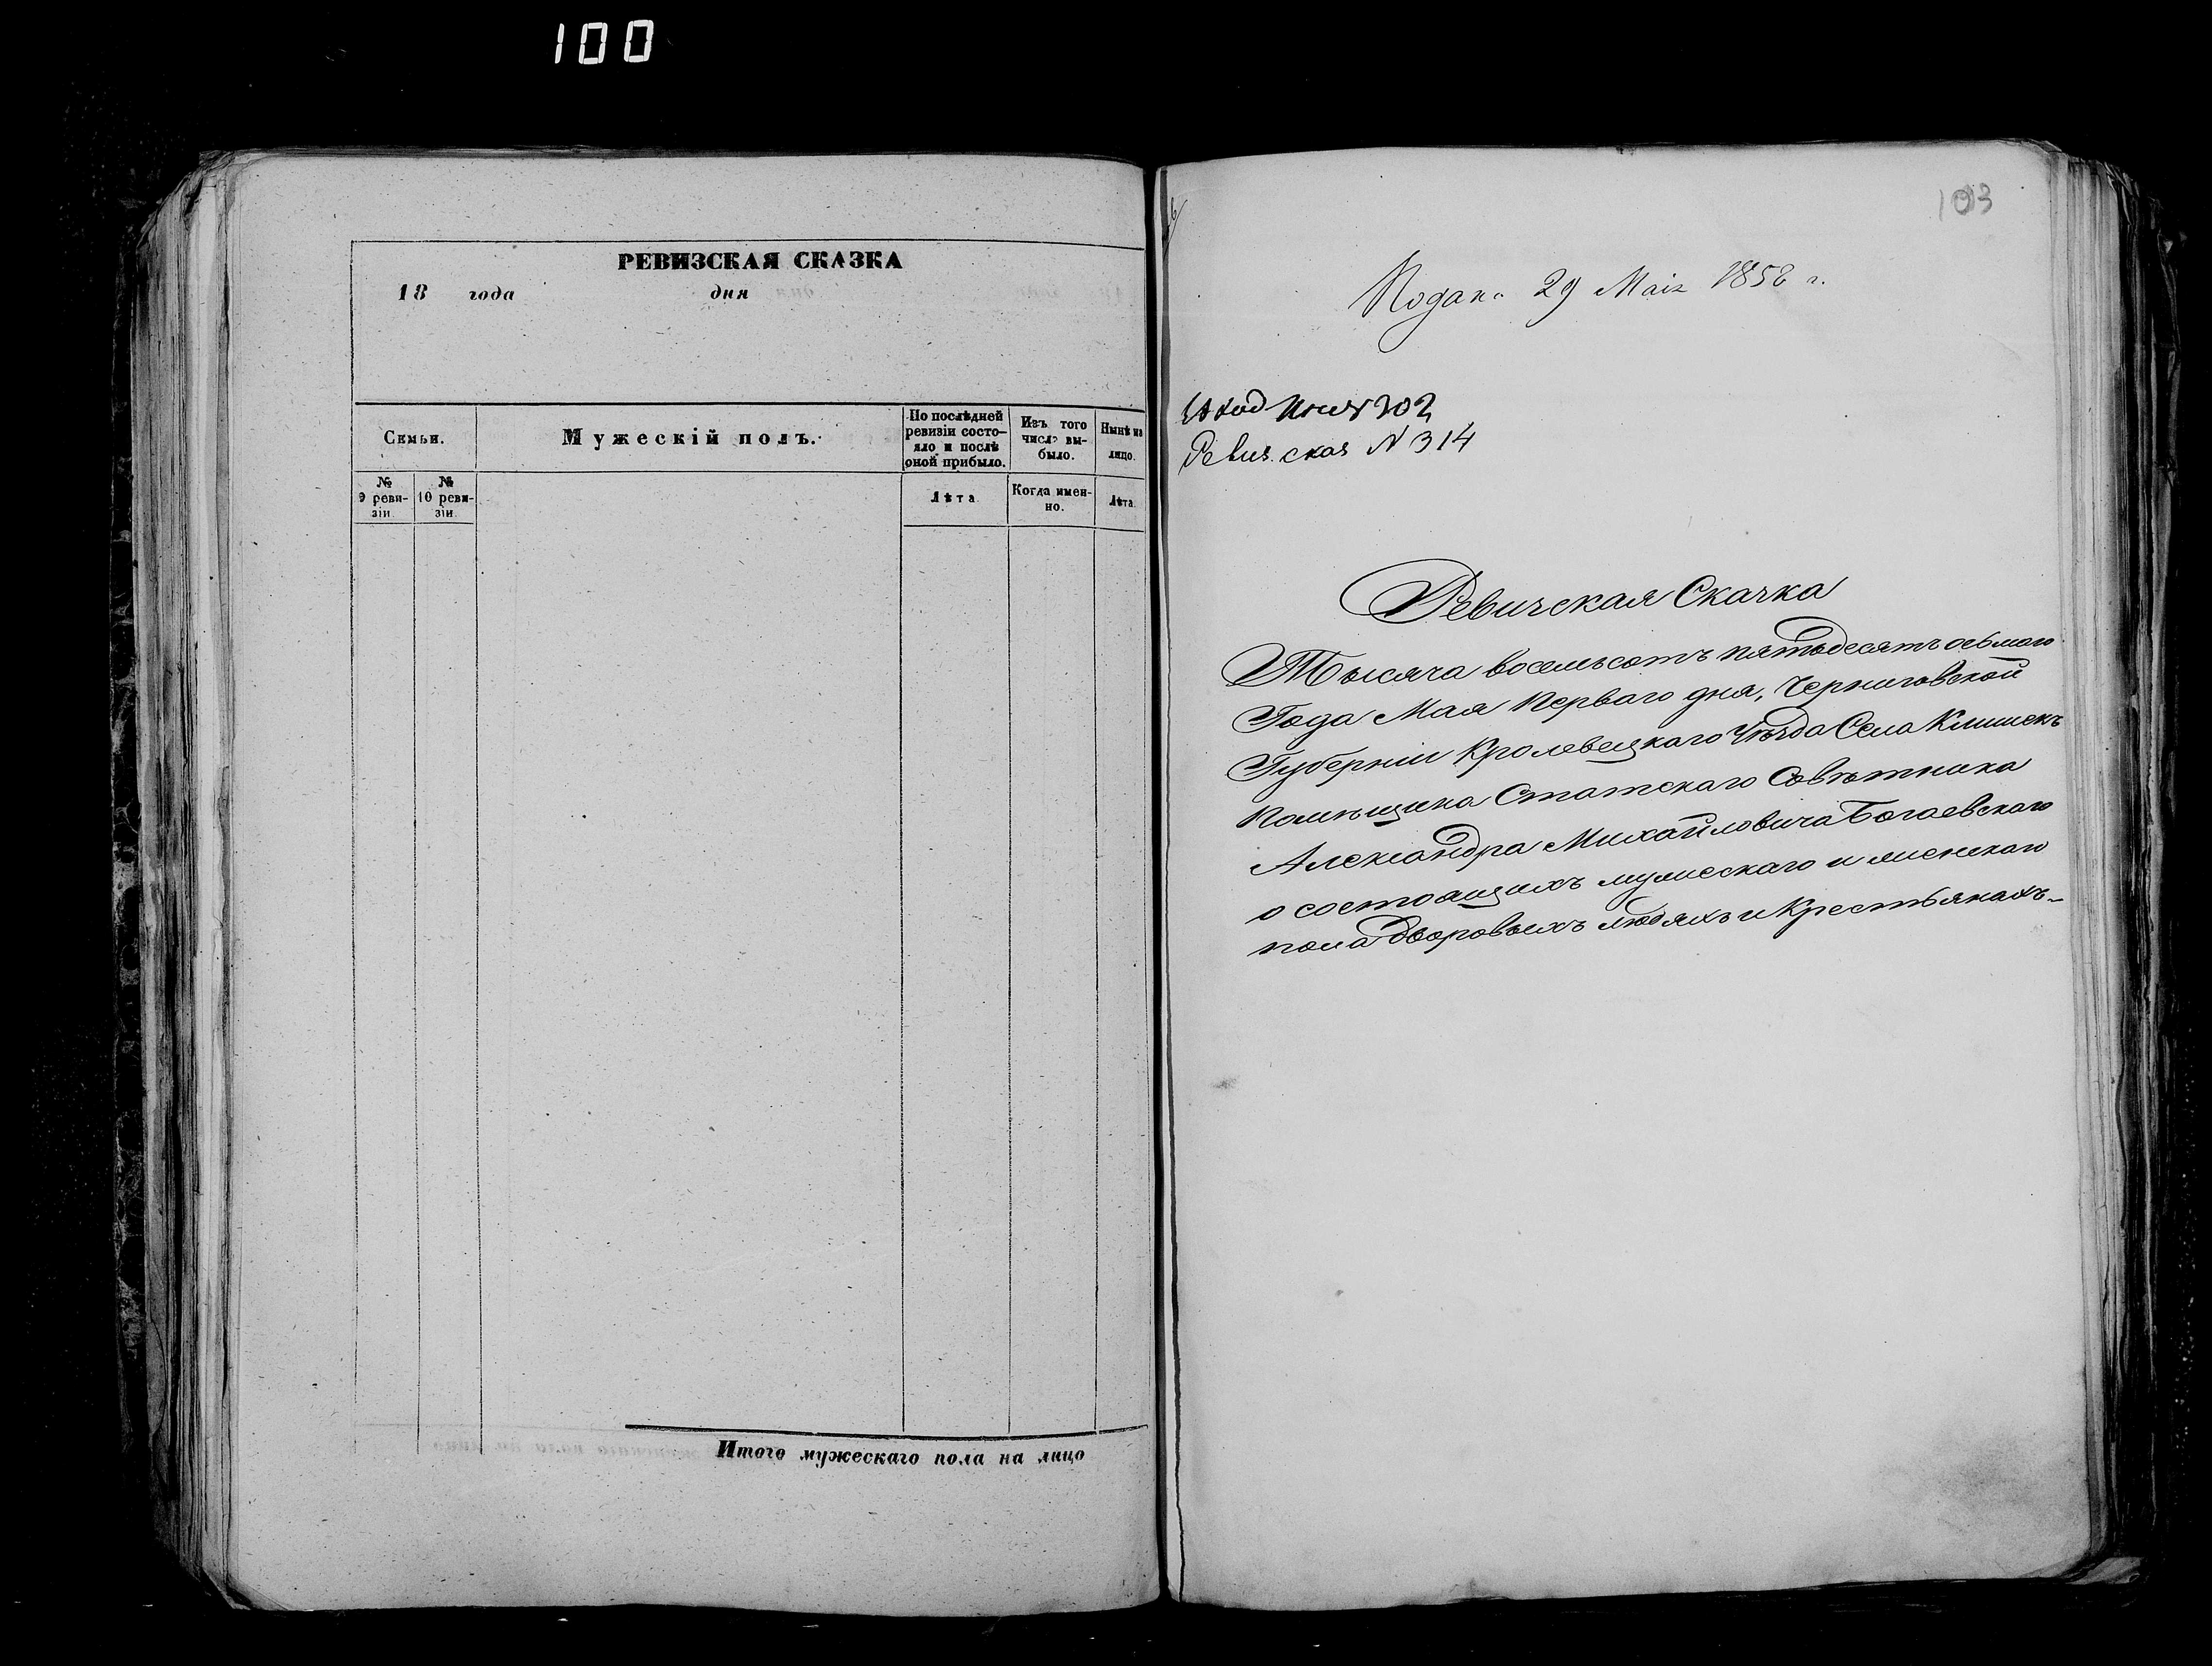 100
РЕВИЗСКАЯ СКАЗКА
18 года дня
Семьи.
Мужескій полъ.
По послѣдней
ревизіи состо-
яло и послѣ
оной прибыло.
Изъ того
числа вы-
было.
Нынѣ на
лицо.
№
9 реви-
зіи.
№
10 реви-
зіи.
Лѣта
Когда имен-
но.
Лѣта.
Итого мужескаго пола на лицо
103
Подана 29 Маія 1858 г.
302
Ревиз. сказ N 314
Ревизская Сказка
Тысяча восемьсотъ пятьдесятъ осьмаго
Года Мая Перваго дня, Черниговской
Губерніи Кролевецкаго Уѣзда Села Клишекъ
Помѣщика Статскаго Совѣтника
Александра Михайловича Богаевскаго
о состоящихъ мужескаго и женскаго
пола дворовыхъ людяхъ и Крестьянахъ-